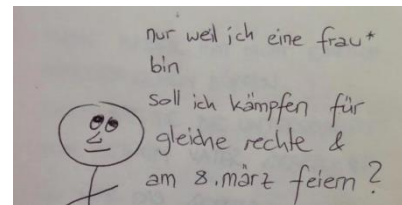 nur weil ich eine frau*
bin
soll ich kämpfen für
gleiche rechte &
am 8. märz feiern?